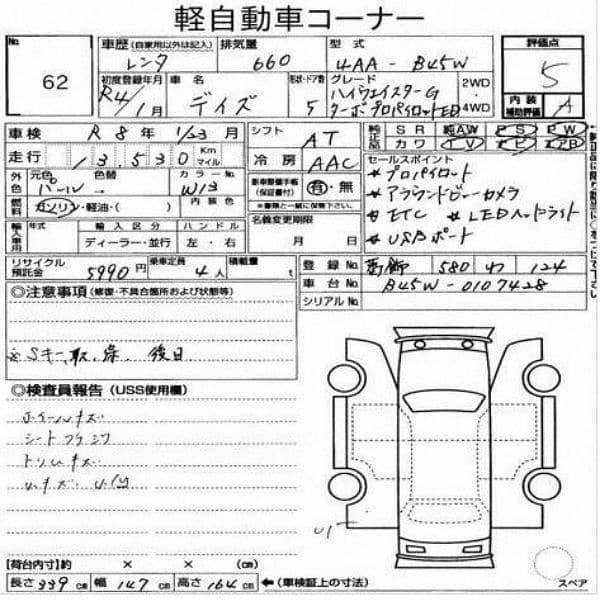 軽自動車コーナー
No.
62
車歴 (自家用以外は記入)
レンタ
排気量
660
型式
4AA - B45W
評価点
5
内装
補助評価
A
初度登録年月
R4/1月
車名
デイズ
形状・ドア数
5
グレード
ハイウェイスターG
ターボプロパイロットED
2WD
4WD
車検
R 8年 1/23 月
シフト
AT
純正品
SR
純AW
PS
PW
カワ
TV
ナビ
エアB
走行
13,530
Km
マイル
冷房
AAC
セールスポイント
*プロパイロット
*アラウンドビューカメラ
*ETC *LEDヘッドライト
*USBポート
外色
元色
パール
色替
カラーNo.
W13
内装色
燃料
ガソリン・軽油・( )
新車整備手帳
(保証書付)
有・無
※書類と一緒に保管下さい。
名義変更期限
月 日
輸入車用
年式
輸入区分
ディーラー・並行
ハンドル
左・右
リサイクル
預託金
5990円
乗車定員
4人
積載量
t
登録No.
葛飾 580 わ 124
車台No.
B45W-0107428
シリアルNo.
◎注意事項 (修復・不具合箇所および状態等)
※Sキー、取、保、後日
◎検査員報告 (USS使用欄)
ホイールキズ
シートフケシワ
トリムキズ
小キズ
【荷台内寸】約 × × (cm)
長さ 339 cm
幅 147 cm
高さ 164 cm
←(車検証上の寸法)
スペア